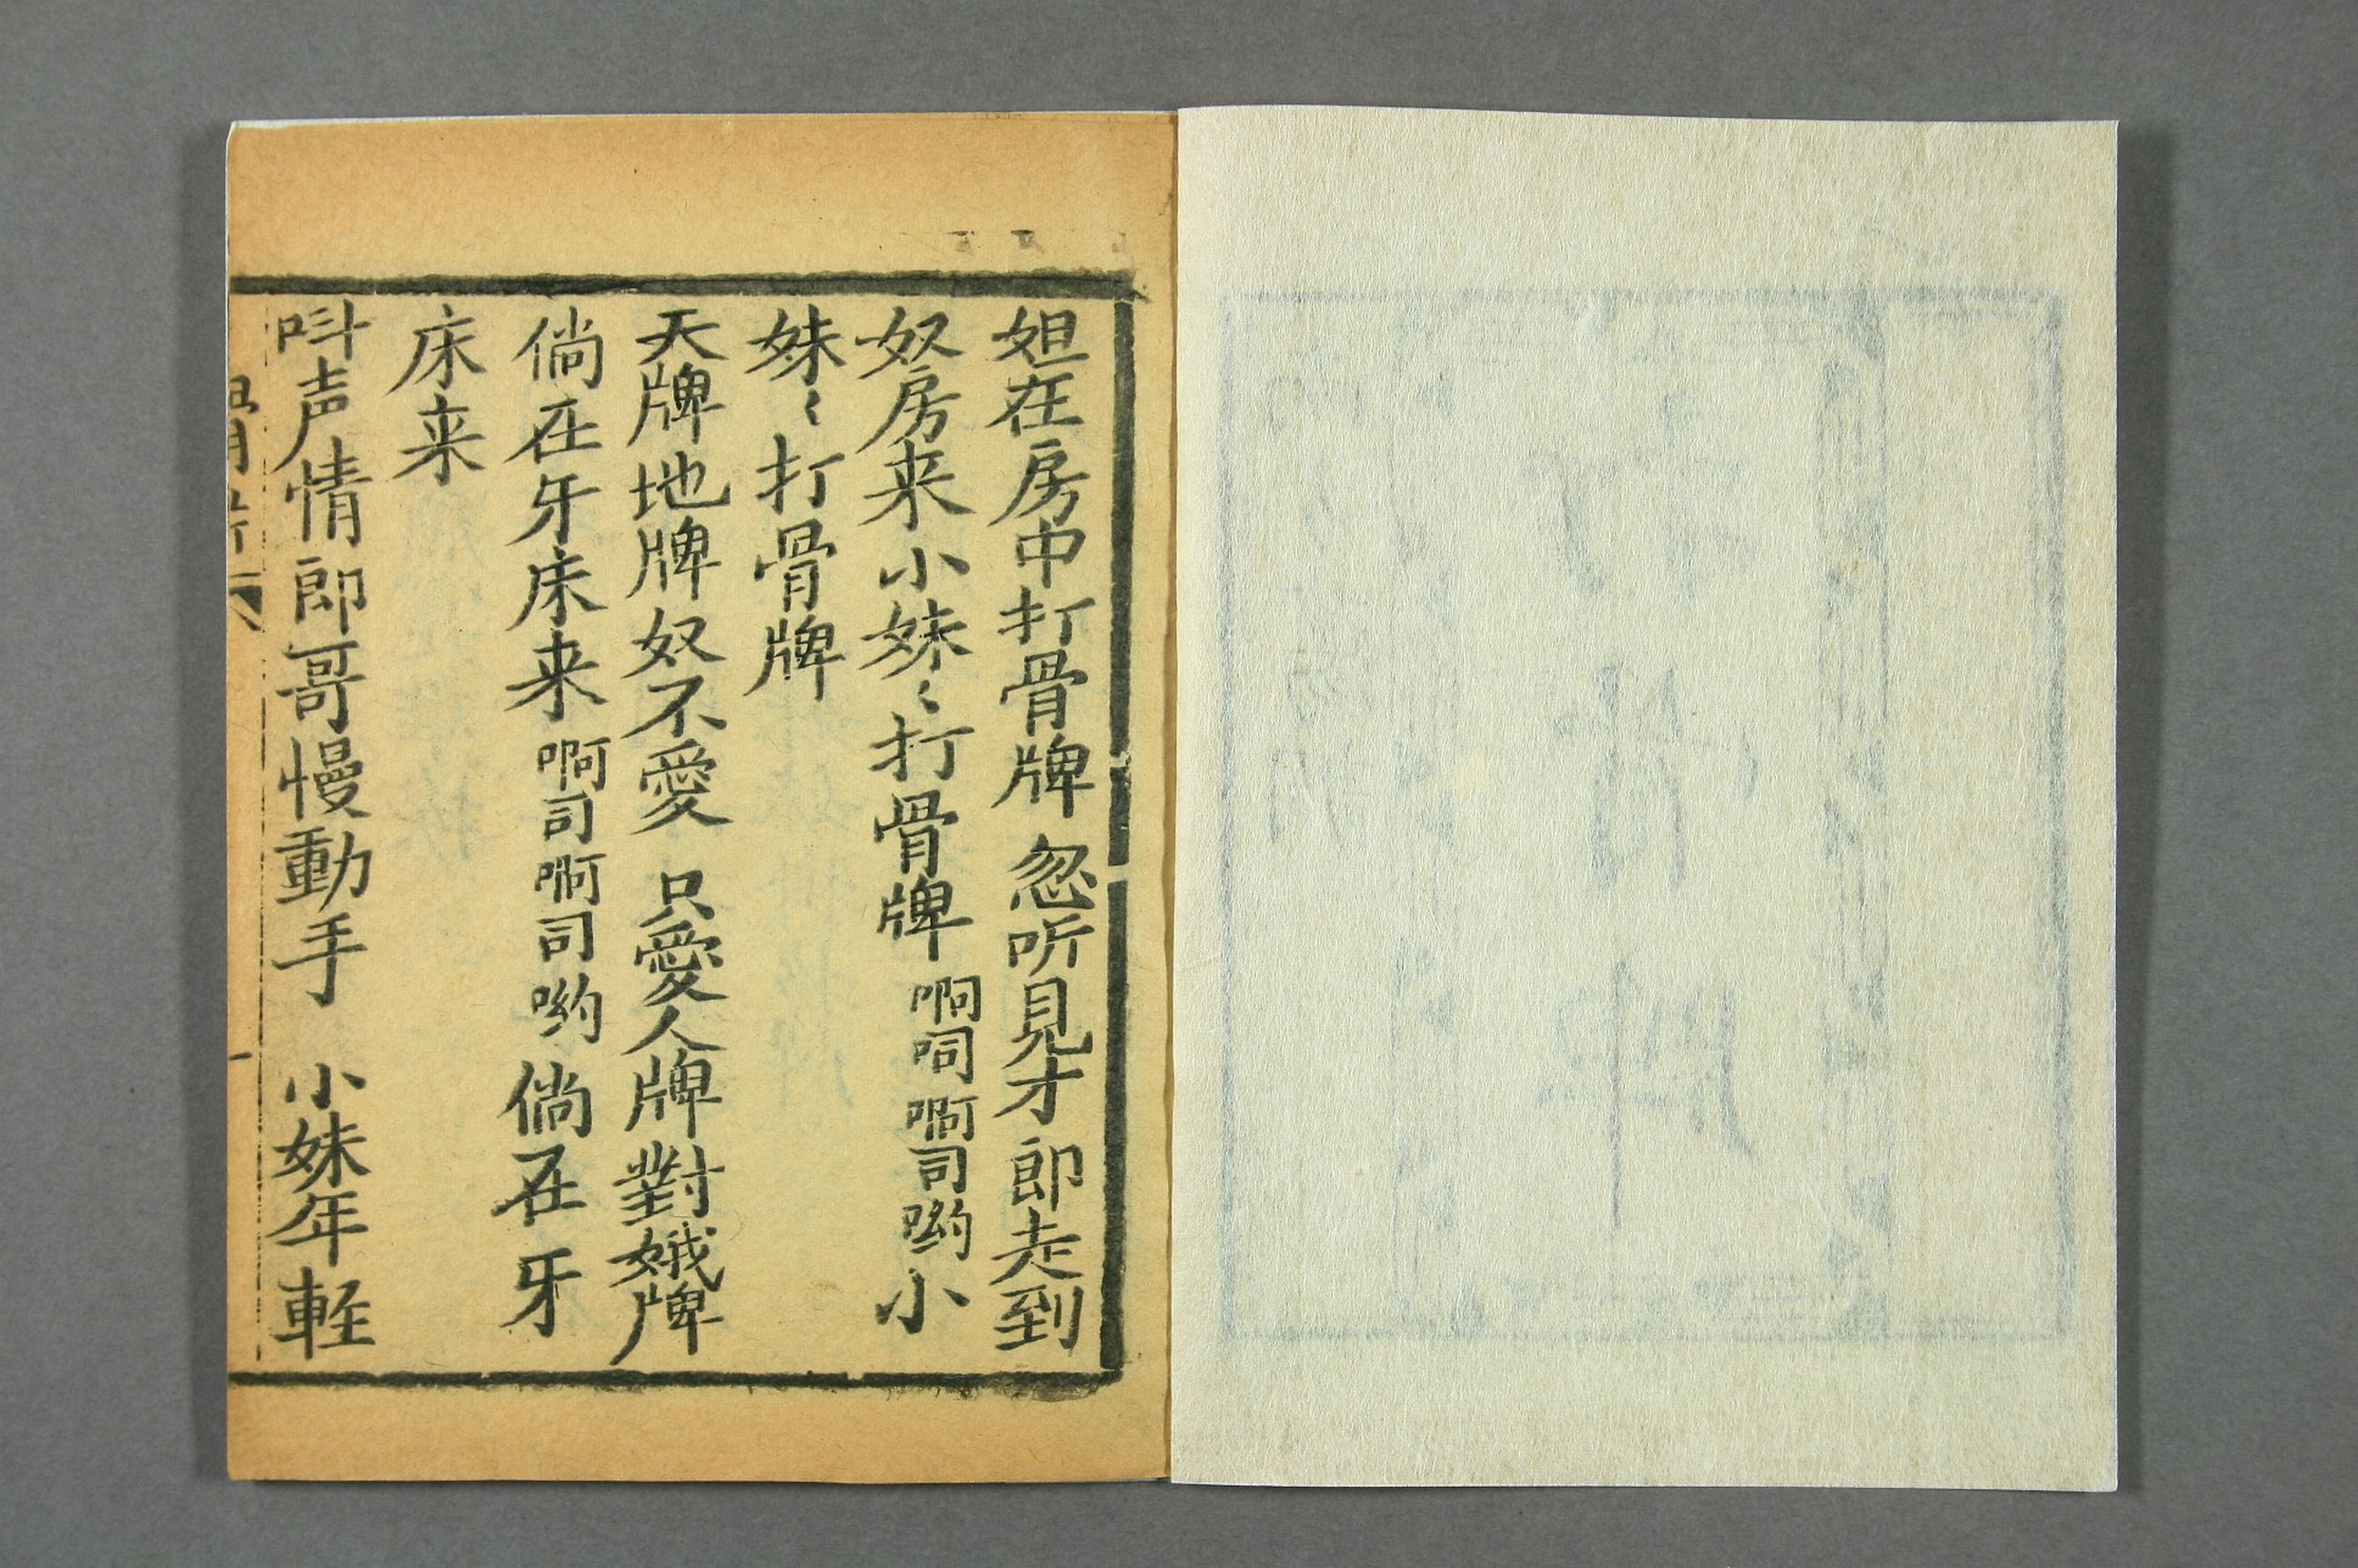 妲在房中打骨牌 忽听見才郎走到
奴房来 小妹〻打骨牌 啊呞啊司哟 小
妹〻打骨牌
天牌地牌奴不愛 只愛人牌對娥牌
倘在牙床来 啊司啊司哟 倘在牙
床来
呌声情郎哥慢動手 小妹年軽